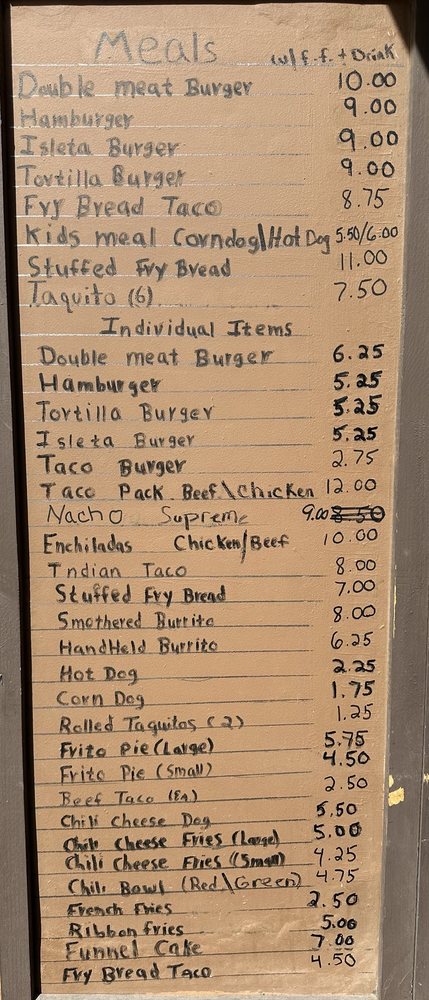 Meals w/f.f. + Drink
Double meat Burger 10.00
Hamburger 9.00
Isleta Burger 9.00
Tortilla Burger 9.00
Fry Bread Taco 8.75
Kids meal Corndog\Hot Dog 5.50/6.00
Stuffed Fry Bread 11.00
Taquito (6) 7.50
Individual Items
Double meat Burger 6.25
Hamburger 5.25
Tortilla Burger 5.25
Isleta Burger 5.25
Taco Burger 2.75
Taco Pack Beef\Chicken 12.00
Nacho Supreme 9.00 8.50
Enchiladas Chicken/Beef 10.00
Indian Taco 8.00
Stuffed Fry Bread 7.00
Smothered Burrito 8.00
HandHeld Burrito 6.25
Hot Dog 2.25
Corn Dog 1.75
Rolled Taquitos (2) 1.25
Frito Pie (Large) 5.75
Frito Pie (Small) 4.50
Beef Taco (Ea.) 2.50
Chili Cheese Dog 5.50
Chili Cheese Fries (Large) 5.00
Chili Cheese Fries (Small) 4.25
Chili Bowl (Red\Green) 4.75
French Fries 2.50
Ribbon fries 5.00
Funnel Cake 7.00
Fry Bread Taco 4.50